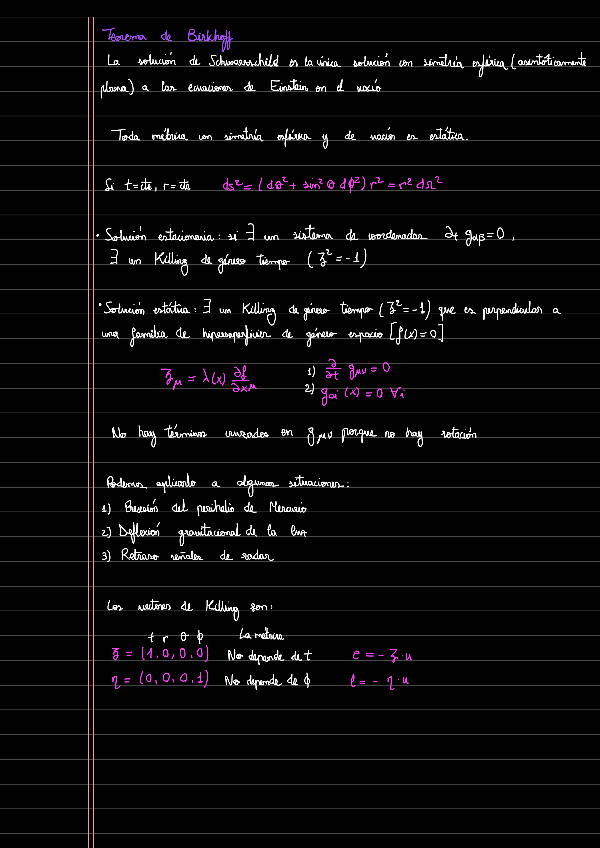 Teorema de Birkhoff
La solución de Schwarzschild es la única solución con simetría esférica (asintóticamente
plana) a las ecuaciones de Einstein en el vacío
Toda métrica con simetría esférica y de vacío es estática.
Si t=cte, r=cte ds² = (dθ² + sin²θ dϕ²) r² = r² dΩ²
• Solución estacionaria: si ∃ un sistema de coordenadas ∂t gαβ=0,
∃ un Killing de género tiempo (ξ²=-1)
• Solución estática: ∃ un Killing de género tiempo (ξ²=-1) que es perpendicular a
una familia de hipersuperficies de género espacio [f(x)=0]
ξμ = λ(x) ∂f/∂xμ 1) ∂/∂t gμν = 0
2) g0i (x) = 0 ∀i
No hay términos cruzados en gμν porque no hay rotación
Podemos aplicarlo a algunas situaciones:
1) Precesión del perihelio de Mercurio
2) Deflexión gravitacional de la luz
3) Retraso señales de radar
Los vectores de Killing son:
t r θ ϕ La métrica
ξ = (1,0,0,0) No depende de t e = - ξ·u
η = (0,0,0,1) No depende de ϕ l = - η·u